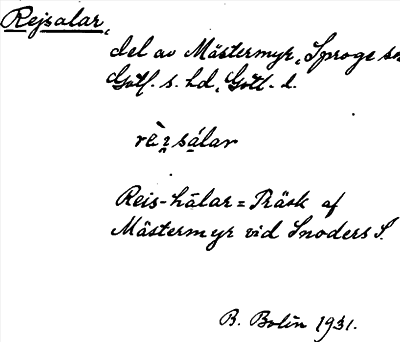 Rejsalar,
del av Mästermyr, Sproge sn
Gotl. s. hd, Gotl. l.
rèi̯sálar
Reis-hālar = Träsk af
Mästermyr vid Snoders S.
B. Bolin 1931.